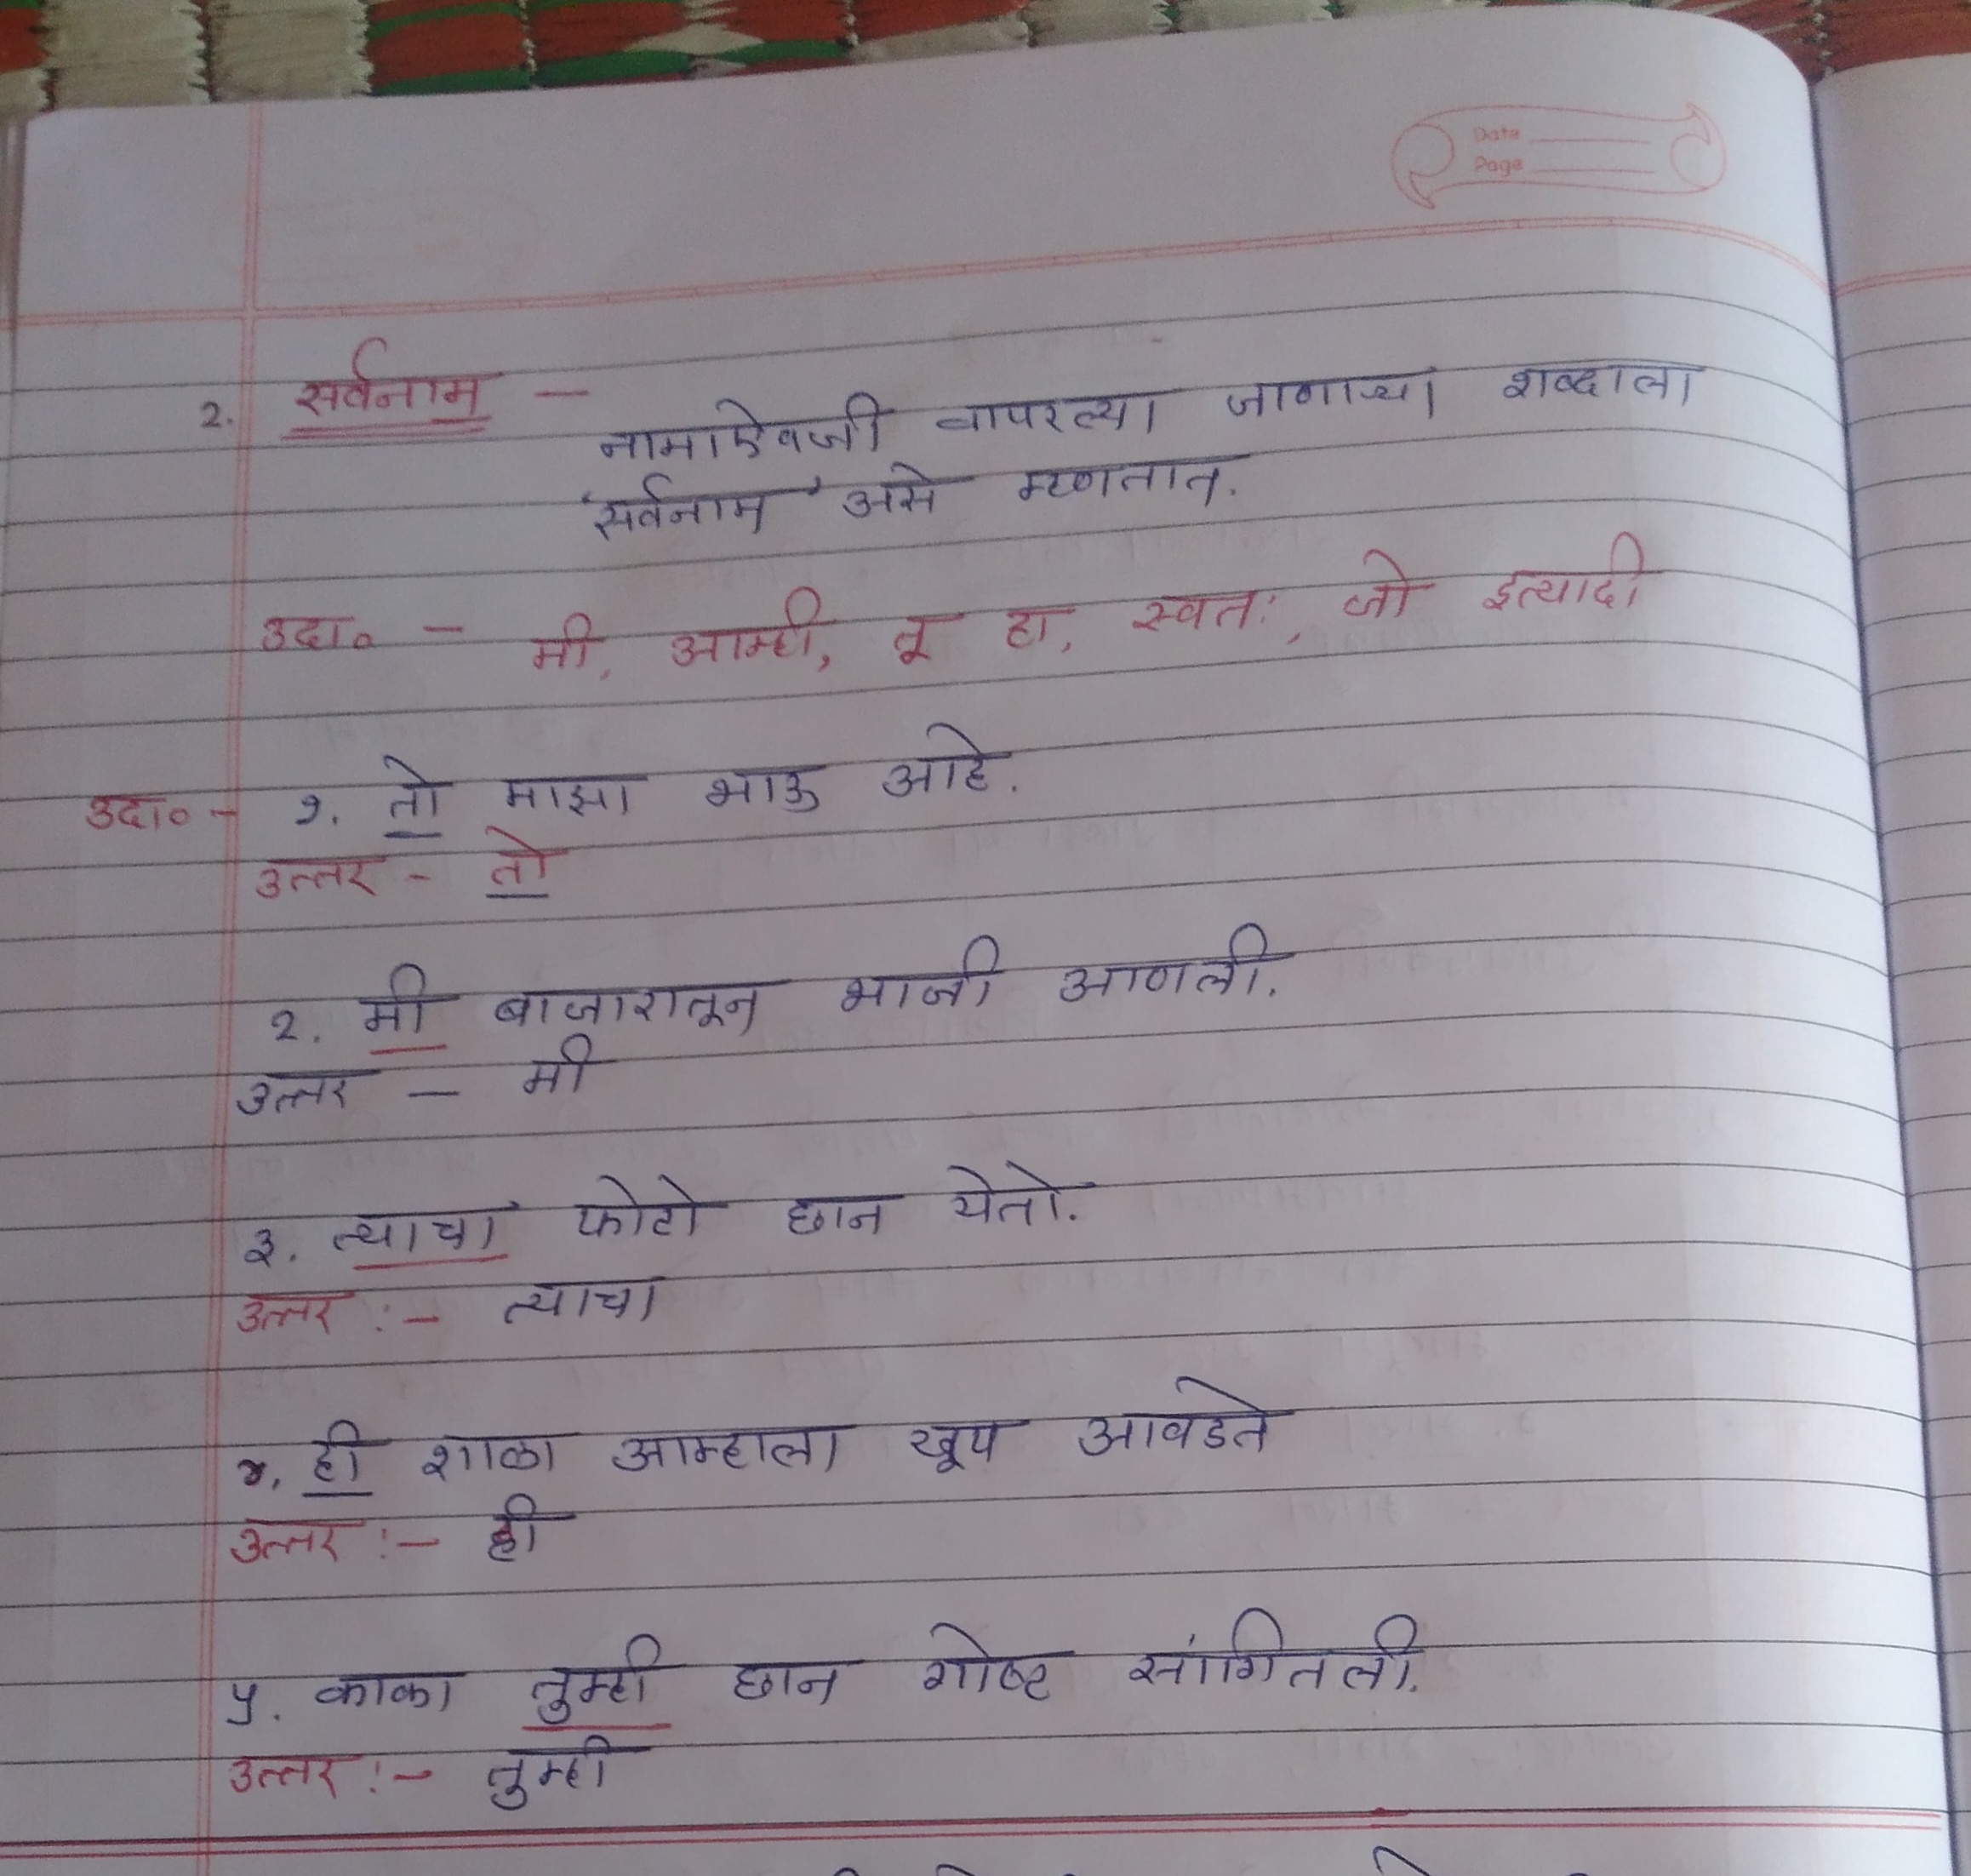 Date
Page
२. सर्वनाम –
नामाऐवजी वापरल्या जाणाऱ्या शब्दाला
'सर्वनाम' असे म्हणतात.
उदा० – मी, आम्ही, तू हा, स्वतः, जो इत्यादी
उदा० - १. तो माझा भाऊ आहे.
उत्तर - तो
२. मी बाजारातून भाजी आणली.
उत्तर – मी
३. त्याचा फोटो छान येतो.
उत्तर :- त्याचा
४. ही शाळा आम्हाला खूप आवडते
उत्तर :- ही
५. काका तुम्ही छान गोष्ट सांगितली.
उत्तर :- तुम्ही